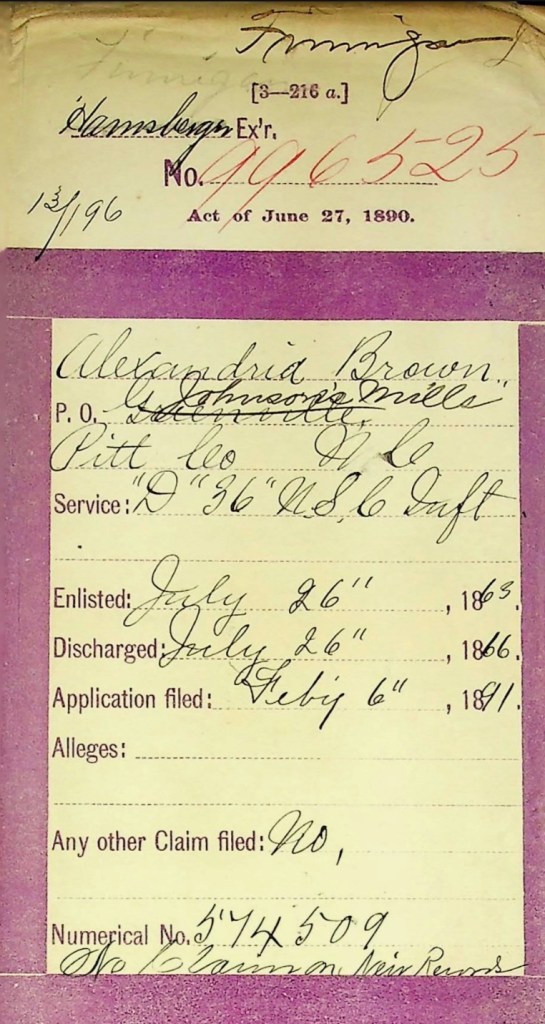 Finnigan
Finnigan
[3—216 a.]
Harnsberger Ex'r.
No. 996525
13/196
Act of June 27, 1890.
Alexandria Brown
Johnson's Mills
P. O. Greenville,
Pitt Co N C
Service: "D" 36" U.S. C Inft
Enlisted: July 26", 1863.
Discharged: July 26", 1866.
Application filed: Feb'y 6", 1891.
Alleges:
Any other Claim filed: No,
Numerical No. 574509
No Claim on New Records